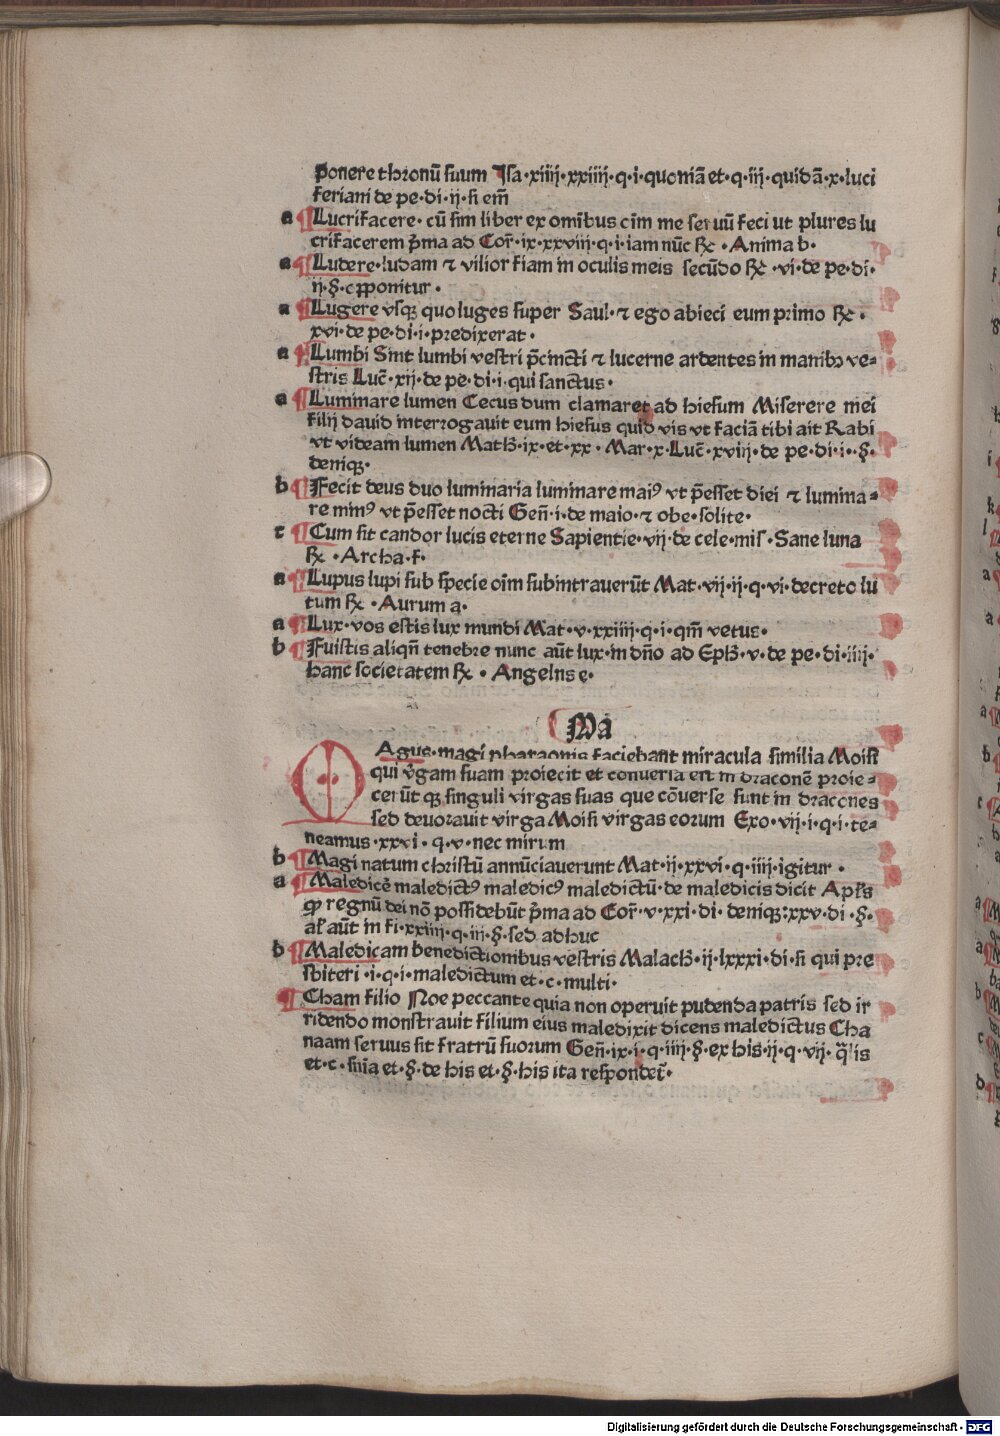 ponere thronū suum Isa·xiiij·xxiiij·q·i·quoniā et·q·iij·quidā·x·luci
feriani de pe·di·ij·si em̄
a Lucrifacere· cū sim liber ex omibus oīm me seruū feci ut plures lu
crifacerem p̄ma ad Cor̄·ix·xxviij·q·i·iam nūc ℞ ·Anima b·
a Ludere·ludam ⁊ vilior fiam in oculis meis secūdo ℞ ·vi·de pe·di·
ij·§·cꝓponitur·
a Lugere vsqꝫ quo luges super Saul·⁊ ego abieci eum primo ℞·
xvi·de pe·di·i·predixerat·
a Lumbi Sint lumbi vestri p̄cincti ⁊ lucerne ardentes in manibꝫ ve-
stris Luc̄·xij·de pe·di·i·qui sanctus·
a Luminare lumen Cecus dum clamaret ad hiesum Miserere mei
filij dauid interrogauit eum hiesus quid vis vt faciā tibi ait Rabi
vt videam lumen Math̄·ix·et·xx·Mar·x·Luc̄·xviij·de pe·di·i·§·
deniqꝫ·
b Fecit deus duo luminaria luminare maiꝰ vt p̄esset diei ⁊ lumina-
re minꝰ vt p̄esset nocti Gen̄·i·de maio·⁊ obe·solite·
c Cum sit candor lucis eterne Sapientie·vij·de cele·mis·Sane luna
℞·Archa·f·
a Lupus lupi sub specie oīm subintrauerūt Mat·vij·ij·q·vi·decreto lu
tum ℞·Aurum a·
a Lux·vos estis lux mundi Mat·v·xxiiij·q·i·qm̄ vetus·
b Fuistis aliqn̄ tenebre nunc aūt lux·in dn̄o ad Eph̄·v·de pe·di·iiij·
hanc societatem ℞·Angelns e·
Ma
MAgus·magi pharaonis faciebant miracula similia Moisi
qui v̄gam suam proiecit et conuersa est in draconē proie-
cerūt qꝫ singuli virgas suas que cōuerse sunt in dracones
sed deuorauit virga Moisi virgas eorum Exo·vij·i·q·i·te-
neamus·xxvi·q·v·nec mirum
b Magi natum christū annūciauerunt Mat·ij·xxvi·q·iiij·igitur·
a Maledicē maledictꝰ maledicꝰ maledictū·de maledicis dicit Apl̄s
ꝙ regnū dei nō possidebūt p̄ma ad Cor̄·v·xxi·di·deniqꝫ:xxv·di·§·
al̄ aūt in fi·xxiiij·q·iij·§·sed adhuc
b Maledicam benedictionibus vestris Malach̄·ij·lxxxi·di·si qui pre
sbiteri·i·q·i·maledictum et·c·multi·
Cham filio Noe peccante quia non operuit pudenda patris sed ir
ridendo monstrauit filium eius maledixit dicens maledictus Cha
naam seruus sit fratrū suorum Gen̄·ix·i·q·iiij·§·ex his·ij·q·vij·q̄lis
et·c·sn̄ia et·§·de his et·§·his ita respondet̄·
Digitalisierung gefördert durch die Deutsche Forschungsgemeinschaft - DFG